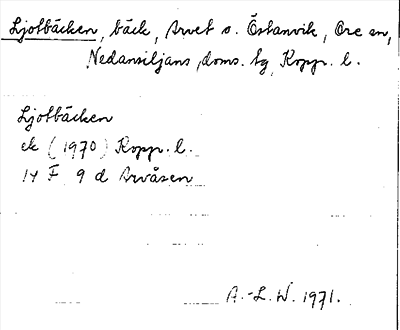 Ljotbäcken, bäck, Arvet o. Östanvik, Ore sn,
Nedansiljans doms. tg, Kopp. l.
Ljotbäcken
ek (1970) Kopp. l.
14 F 9 d Arvåsen
A.-L. W. 1971.